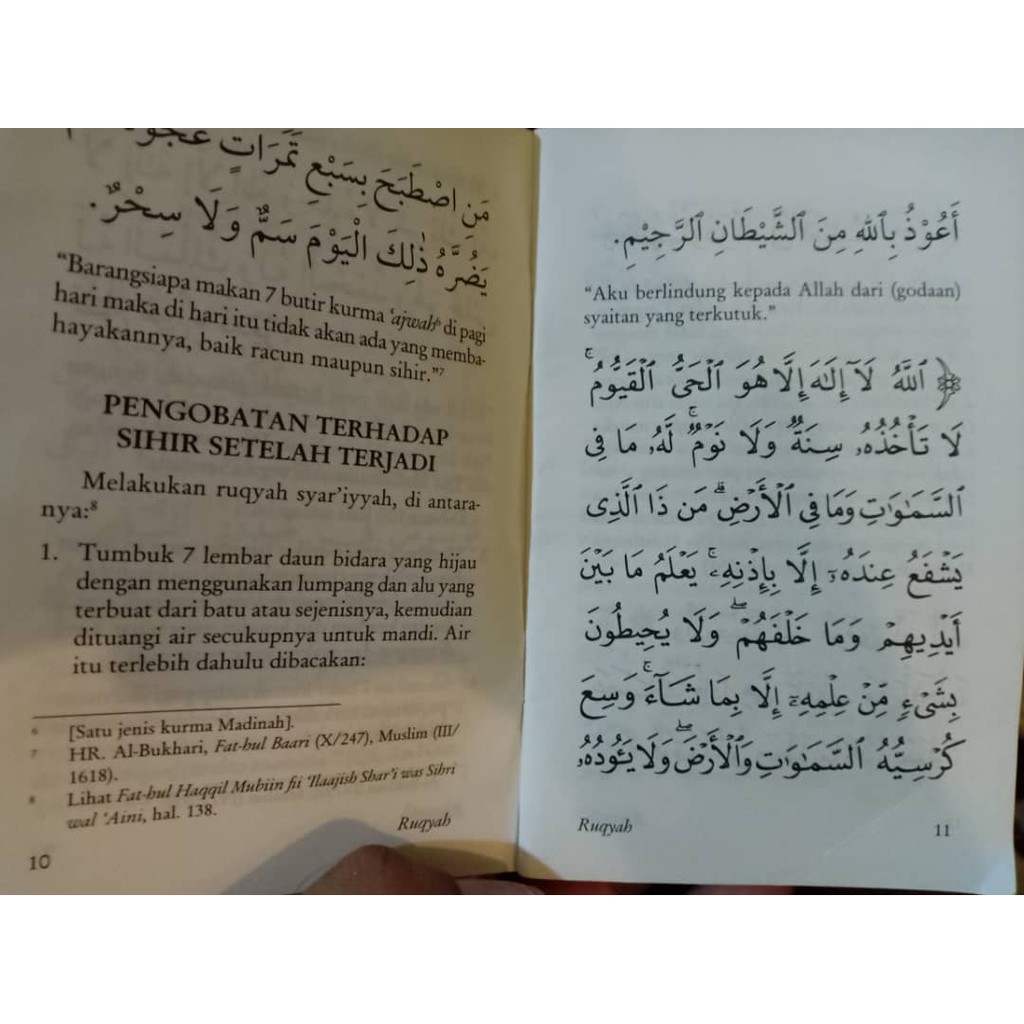 مَنِ اصْطَبَحَ بِسَبْعِ تَمَرَاتٍ
يَضُرَّهُ ذٰلِكَ الْيَوْمَ سَمٌّ وَلَا سِحْرٌ.
“Barangsiapa makan 7 butir kurma ‘ajwah⁶ di pagi
hari maka di hari itu tidak akan ada yang memba-
hayakannya, baik racun maupun sihir.”⁷
PENGOBATAN TERHADAP
SIHIR SETELAH TERJADI
Melakukan ruqyah syar’iyyah, di antara-
nya:⁸
1. Tumbuk 7 lembar daun bidara yang hijau
dengan menggunakan lumpang dan alu yang
terbuat dari batu atau sejenisnya, kemudian
dituangi air secukupnya untuk mandi. Air
itu terlebih dahulu dibacakan:
⁶ [Satu jenis kurma Madinah].
⁷ HR. Al-Bukhari, Fat-hul Baari (X/247), Muslim (III/
1618).
⁸ Lihat Fat-hul Haqqil Mubiin fii ‘Ilaajish Shar’i was Sihri
wal ‘Aini, hal. 138.
Ruqyah
10
أَعُوْذُ بِٱللهِ مِنَ ٱلشَّيْطَانِ ٱلرَّجِيْمِ.
“Aku berlindung kepada Allah dari (godaan)
syaitan yang terkutuk.”
﴿ ٱللَّهُ لَآ إِلَـٰهَ إِلَّا هُوَ ٱلْحَىُّ ٱلْقَيُّومُ ۚ
لَا تَأْخُذُهُۥ سِنَةٌ وَلَا نَوْمٌ ۚ لَّهُۥ مَا فِى
ٱلسَّمَـٰوَٰتِ وَمَا فِى ٱلْأَرْضِ ۗ مَن ذَا ٱلَّذِى
يَشْفَعُ عِندَهُۥٓ إِلَّا بِإِذْنِهِۦ ۚ يَعْلَمُ مَا بَيْنَ
أَيْدِيهِمْ وَمَا خَلْفَهُمْ ۖ وَلَا يُحِيطُونَ
بِشَىْءٍ مِّنْ عِلْمِهِۦٓ إِلَّا بِمَا شَآءَ ۚ وَسِعَ
كُرْسِيُّهُ ٱلسَّمَـٰوَٰتِ وَٱلْأَرْضَ ۖ وَلَا يَـُٔودُهُۥ
Ruqyah
11